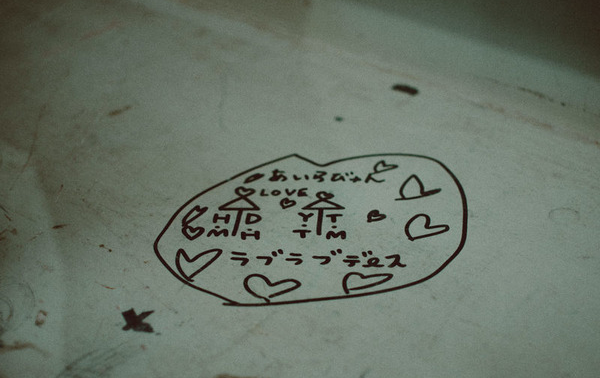 あいらびゅん
LOVE
H D Y T
M H T M
ラブラブデース